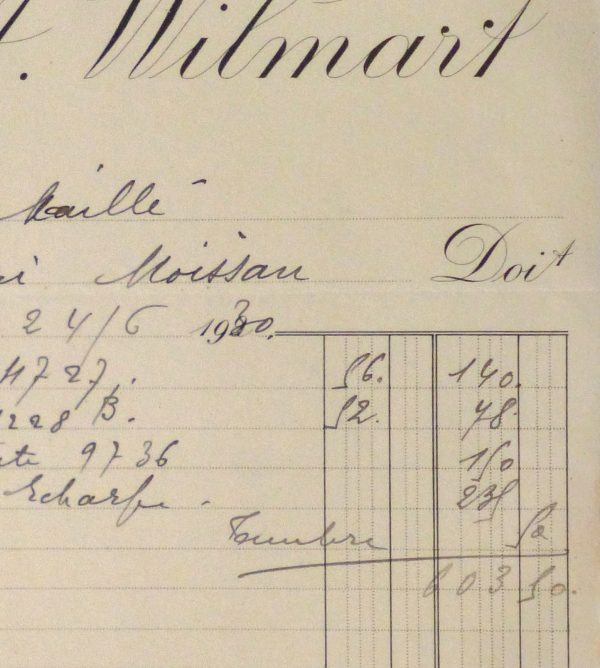 t. Wilmart
Maillé
Moissan Doit
24/6 1930.
4727. 56. 140.
1228 B. 52. 78.
9736 150
Echarpe. 235
Timbre 50
603 50.